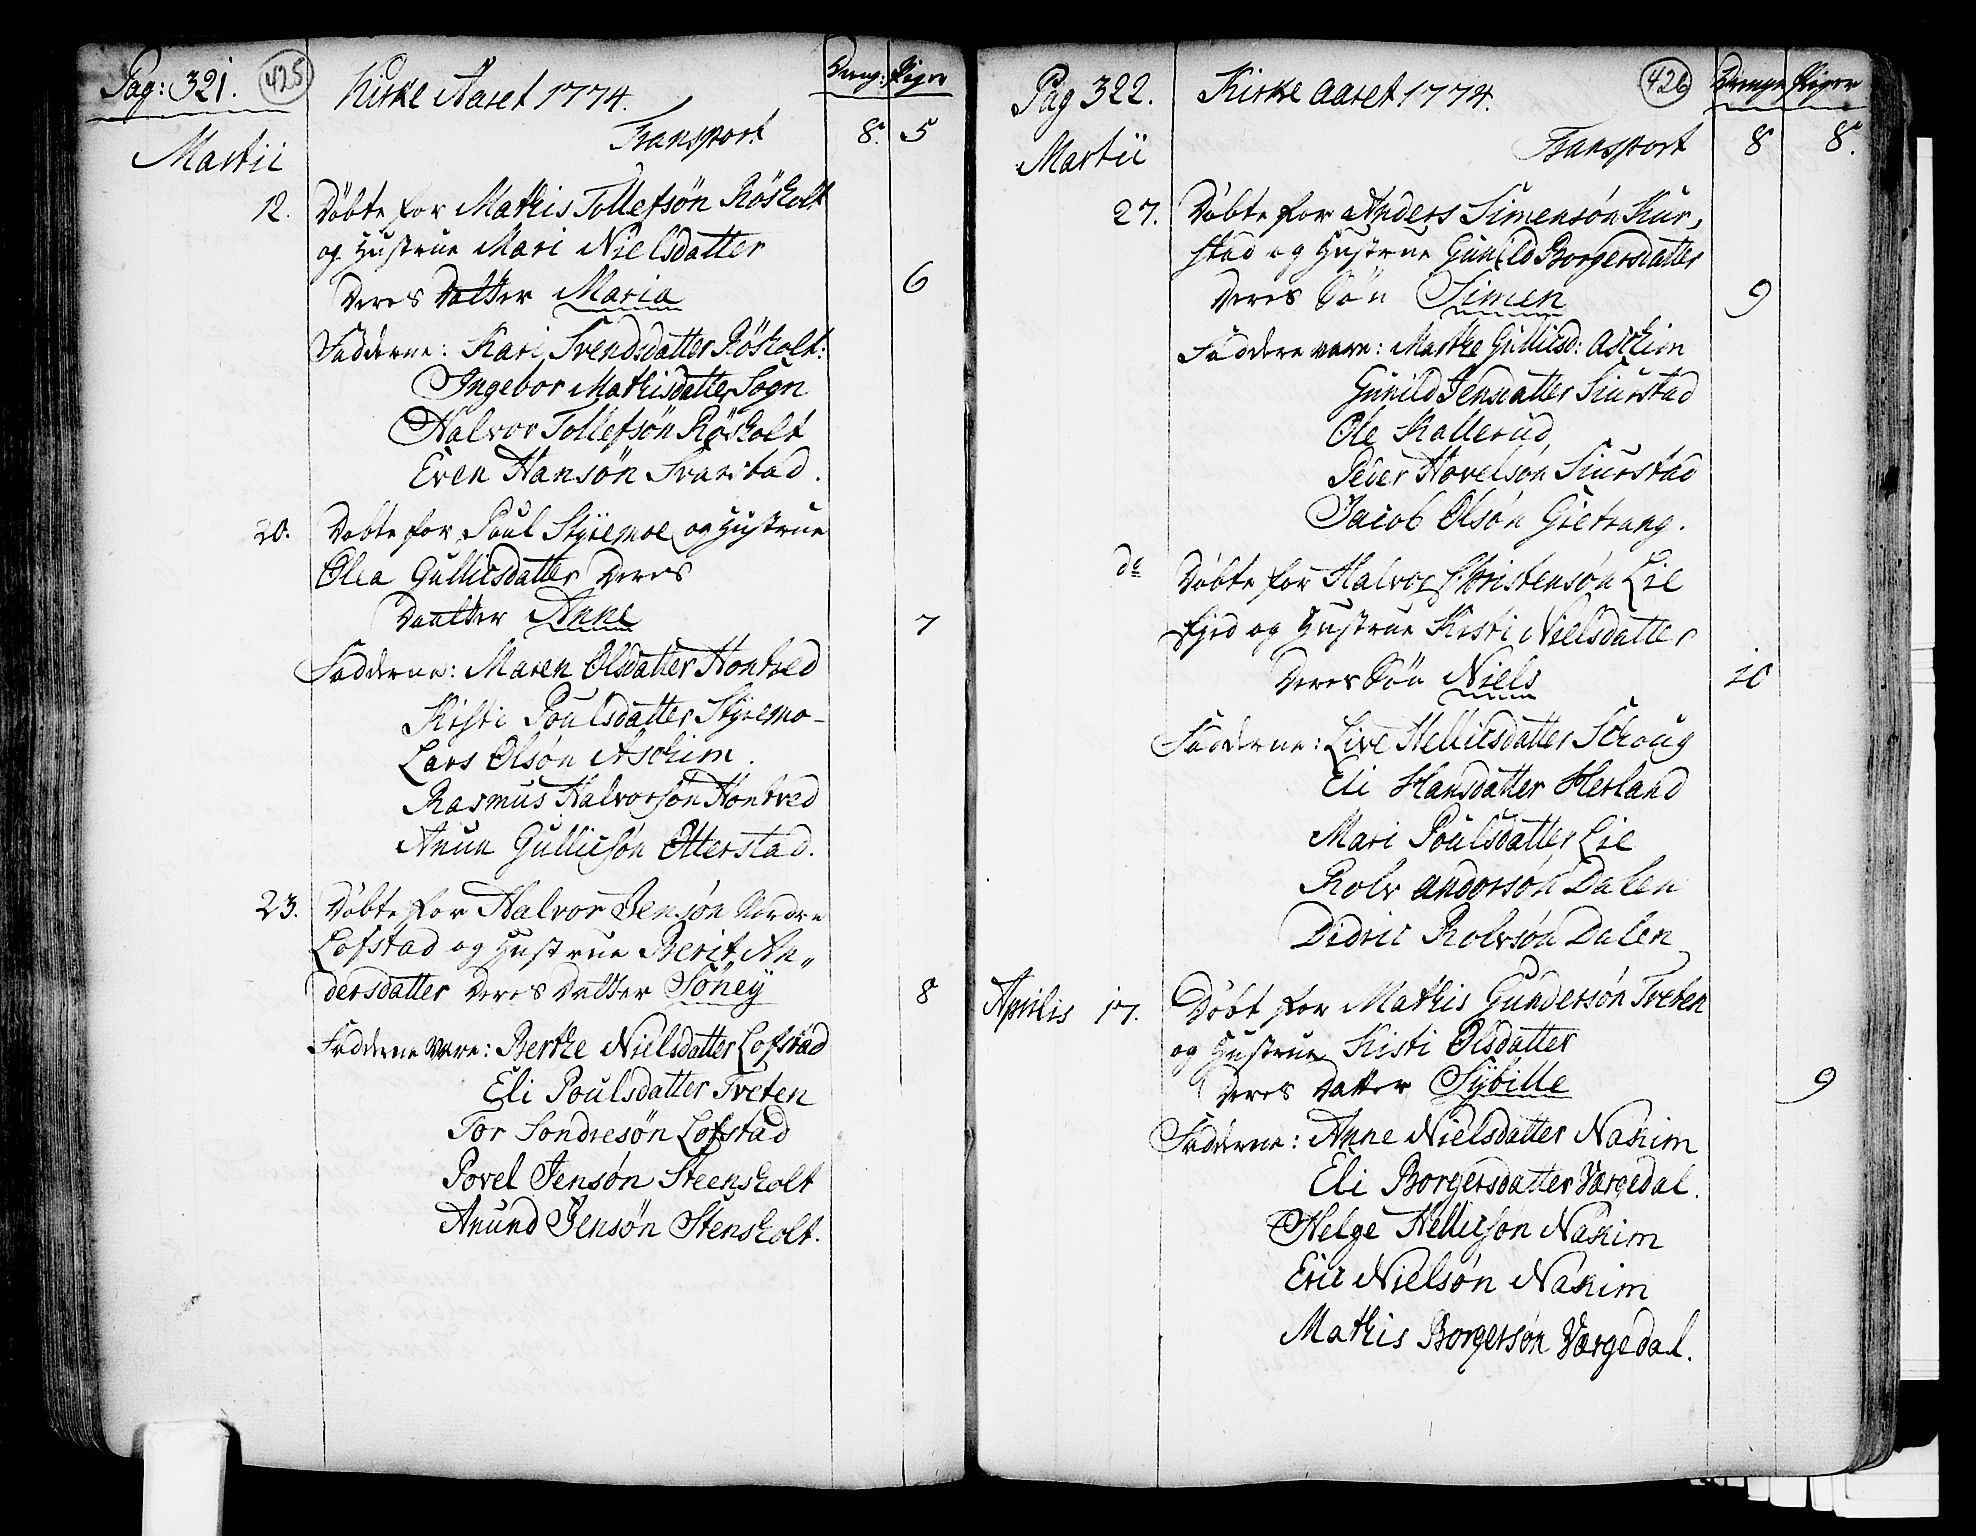 Pag: 321. 425 Kirke Aaret 1774. Dreng: Piger
Transport 8. 5
Martii
12. Döbte for Mathis Tollefsön Rösholt
og Hustrue Mari Nielsdatter
Deres Datter Maria 6
Fadderne: Kari Svendsdatter Rösholt:
Ingebor Mathisdatter Sogn
Halvor Tollefsön Rösholt
Even Hansön Svarstad.
20. Döbte for Poul Styremoe og Hustrue
Olea Gullicsdatter Deres
Daatter Anne 7
Fadderne: Maren Olsdatter Hontved
Kisti Poulsdatter Styremo-
Lars Olsön Aschim.
Rasmus Halvorsön Hontved
Anun Gullicsön Otterstad.
23. Döbte for Halvor Jensön Nordre
Lofstad og Hustrue Berit An„
dersdatter Deres Datter Söney 8
Fadderne vare: Berthe Nielsdatter Lofstad
Eli Poulsdatter Tveten
Tor Sondresön Lofstad
Povel Jensön Steensholt
Anund Jensön Stensholt.
Pag 322. Kirke Aaret 1774. 426 Drenge Piger
Transport 8 8.
Martii
27. Döbte for Anders Simensön Siur,
stad og Hustrue Gunild Borgersdatter
Deres Sön Simen 9
Faddere vare: Marthe Gullicsd: Aschim
Gunild Jensdatter Siurstad
Ole Kallerud
Peder Hovelsön Siurstad
Jacob Olsön Gietrang.
do Döbte for Halvor Christensön Lie
fjed og Hustrue Kisti Nielsdatter
Deres Sön Niels 10
Fadderne: Live Hellicsdatter Schoug
Eli Hansdatter Herland
Mari Poulsdatter Lie
Rolv Andorsön Dalen
Didric Rolvsön Dalen
Aprilis 17. Döbt for Mathis Gundersön Tveten
og Hustrue Kisti Olsdatter
Deres Datter Sÿbille 9
Fadderne: Anne Nielsdatter Naschim
Eli Borgersdatter Værgedal.
Helge Hellicsön Naschim
Eric Nielsön Naschim
Mathis Borgersön Værgedal.